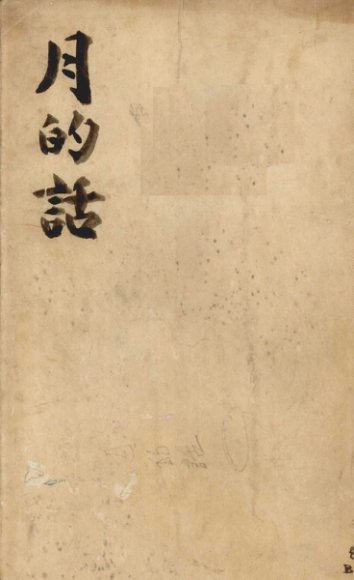 月的話